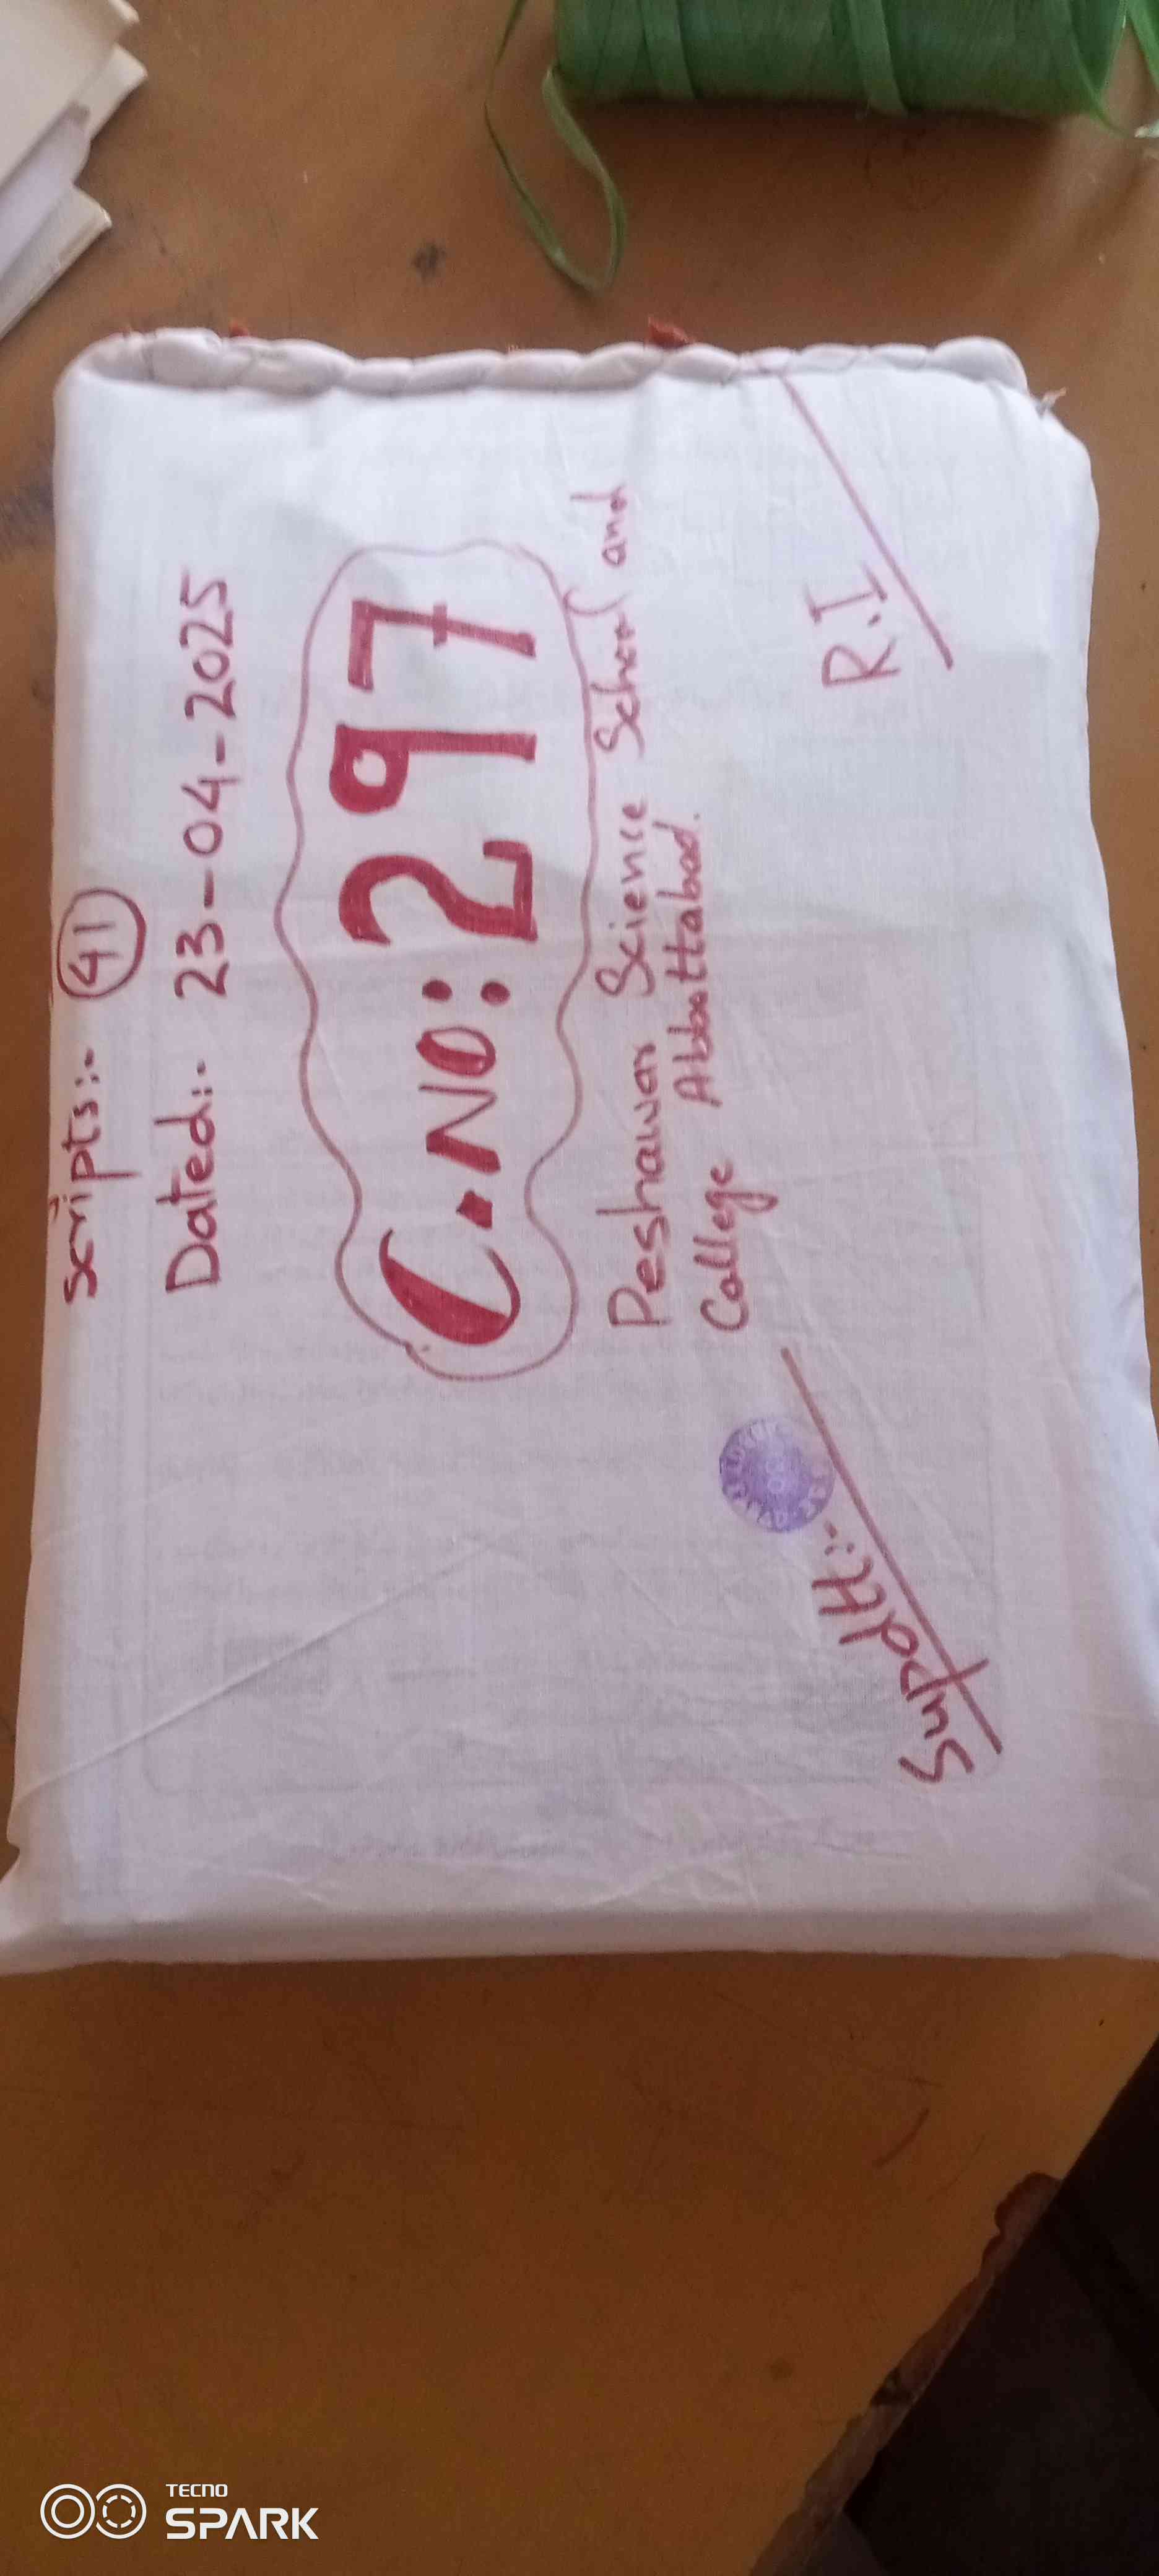 Scripts:- 41
Dated:- 23-04-2025
C.NO:297
Peshawar Science School and
College Abbottabad.
R.I
Supdtt:-
TECNO
SPARK